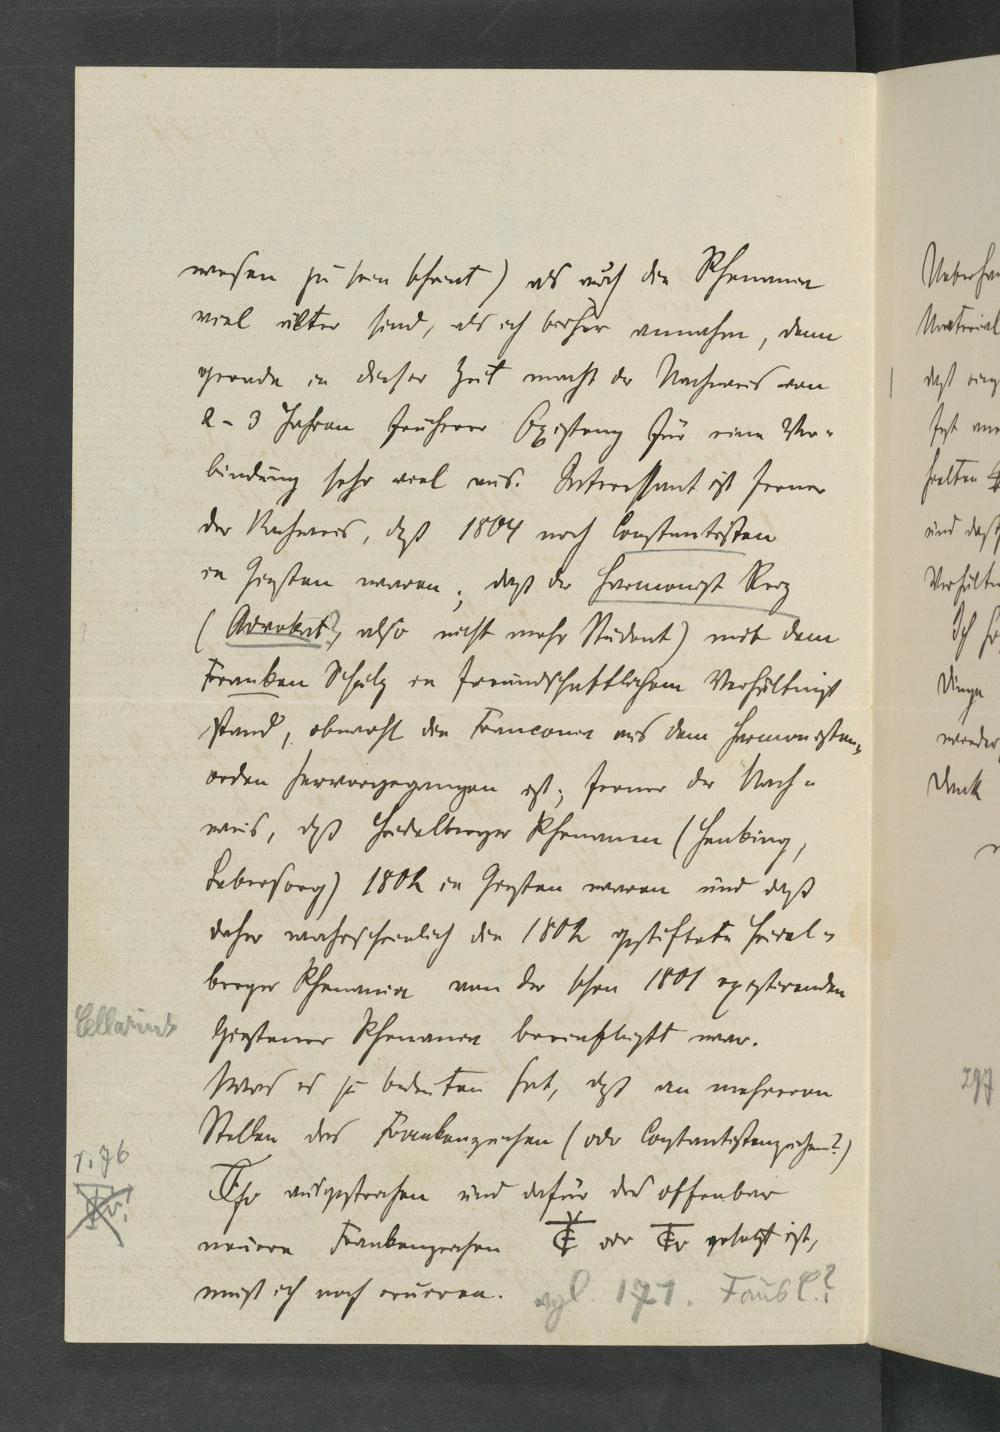 wesen zu sein scheint) als auch die Rhenania
viel älter sind, als ich bisher annahm, denn
gerade in dieser Zeit macht der Nachweis von
2-3 Jahren früherer Existenz für eine Ver-
bindung sehr viel aus. Interessant ist ferner
der Nachweis, daß 1804 noch Constantisten
in Gießen waren; daß der Harmonist Rery
(Advokat?, also nicht mehr Student) mit dem
Franken Schulz in freundschaftlichem Verhältniß
stand, obwohl die Franconia aus dem Harmonisten-
orden hervorgegangen ist; ferner der Nach-
weis, daß Heidelberger Rhenanen (Henking,
Lebersorg) 1802 in Gießen waren und daß
daher wahrscheinlich die 1802 gestiftete Heidel-
berger Rhenania von der schon 1801 existirenden
Gießener Rhenania beeinflußt war.
Was es zu bedeuten hat, daß an mehreren
Stellen das Frankenzeichen (oder Constantistenzeichen?)
ausgestrichen und dafür das offenbar
neuere Frankenzeichen oder gesetzt ist,
muß ich noch eruiren. vgl. 171.
1.76
Ueber
Material
daß
fest
halten
und daß
Verhält
Ich
Dinge
wieder
Dank